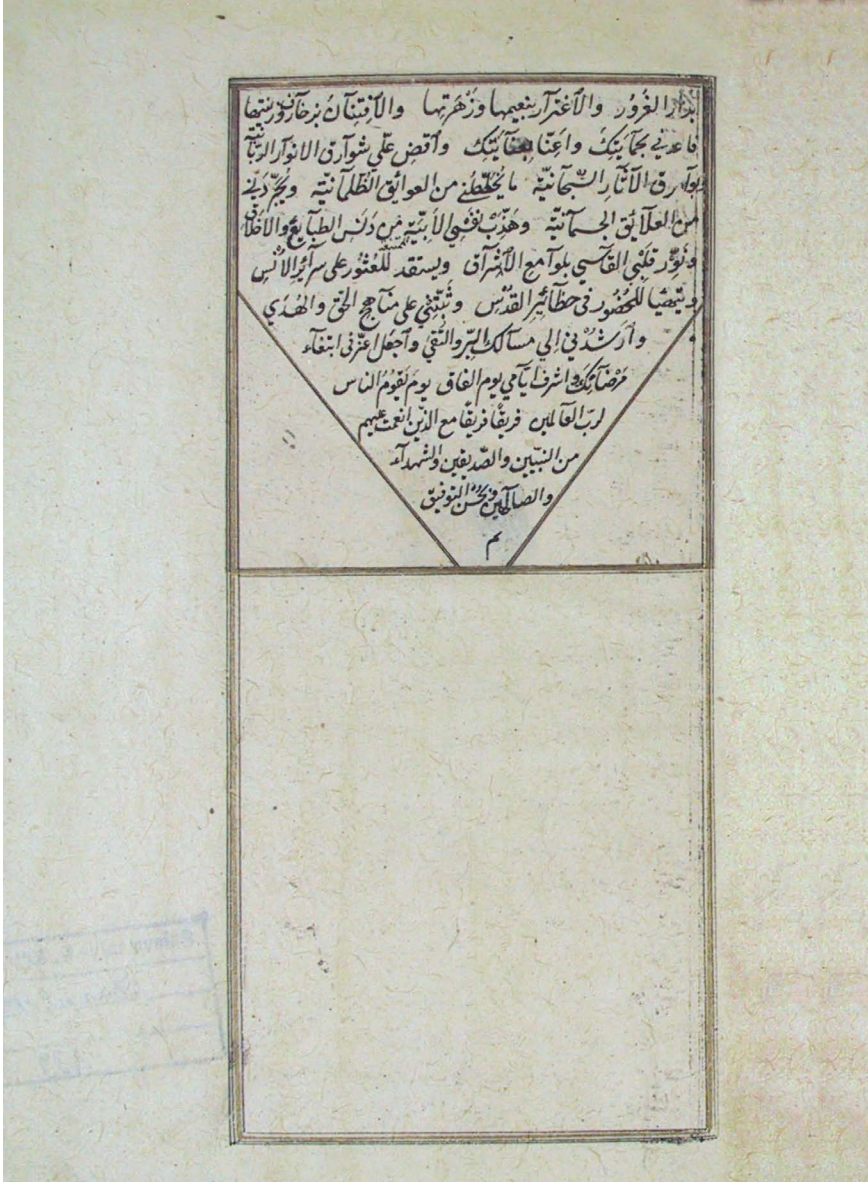 بدار الغرور والاغترار بنعيمها وزهرتها والافتتان بزخارف زينتها
فاعذني بحمايتك واعنّا بعنايتك وأفض علّي شوارق الانوار الربّانيّة
وبوارق الآثار السبحانيّة ما يخلّصني من العوائق الظلمانيّة ويجرّدني
من العلائق الجسمانيّة وهذّب نفسي الأبيّة من دنس الطبايع والاخلاق
ونوّر قلبي القاسي بلوامع الإشراق ويستعد للعثور على سرآئر الأنس
ويتهيّا للحضور في حظآئر القدس وثبّتني على مناهج الحق والهدي
وأرشدني إلي مسالك البرّ والتقي واجعل اعزّ في ابتغآء
مرضاتك واشرف ايّامي يوم الفاق يوم يقوم الناس
لربّ العالمين فريقًا فريقًا مع الذين انعمت عليهم
من النبيّين والصّديقين والشهدآء
والصالحين بحسن التوفيق
تم